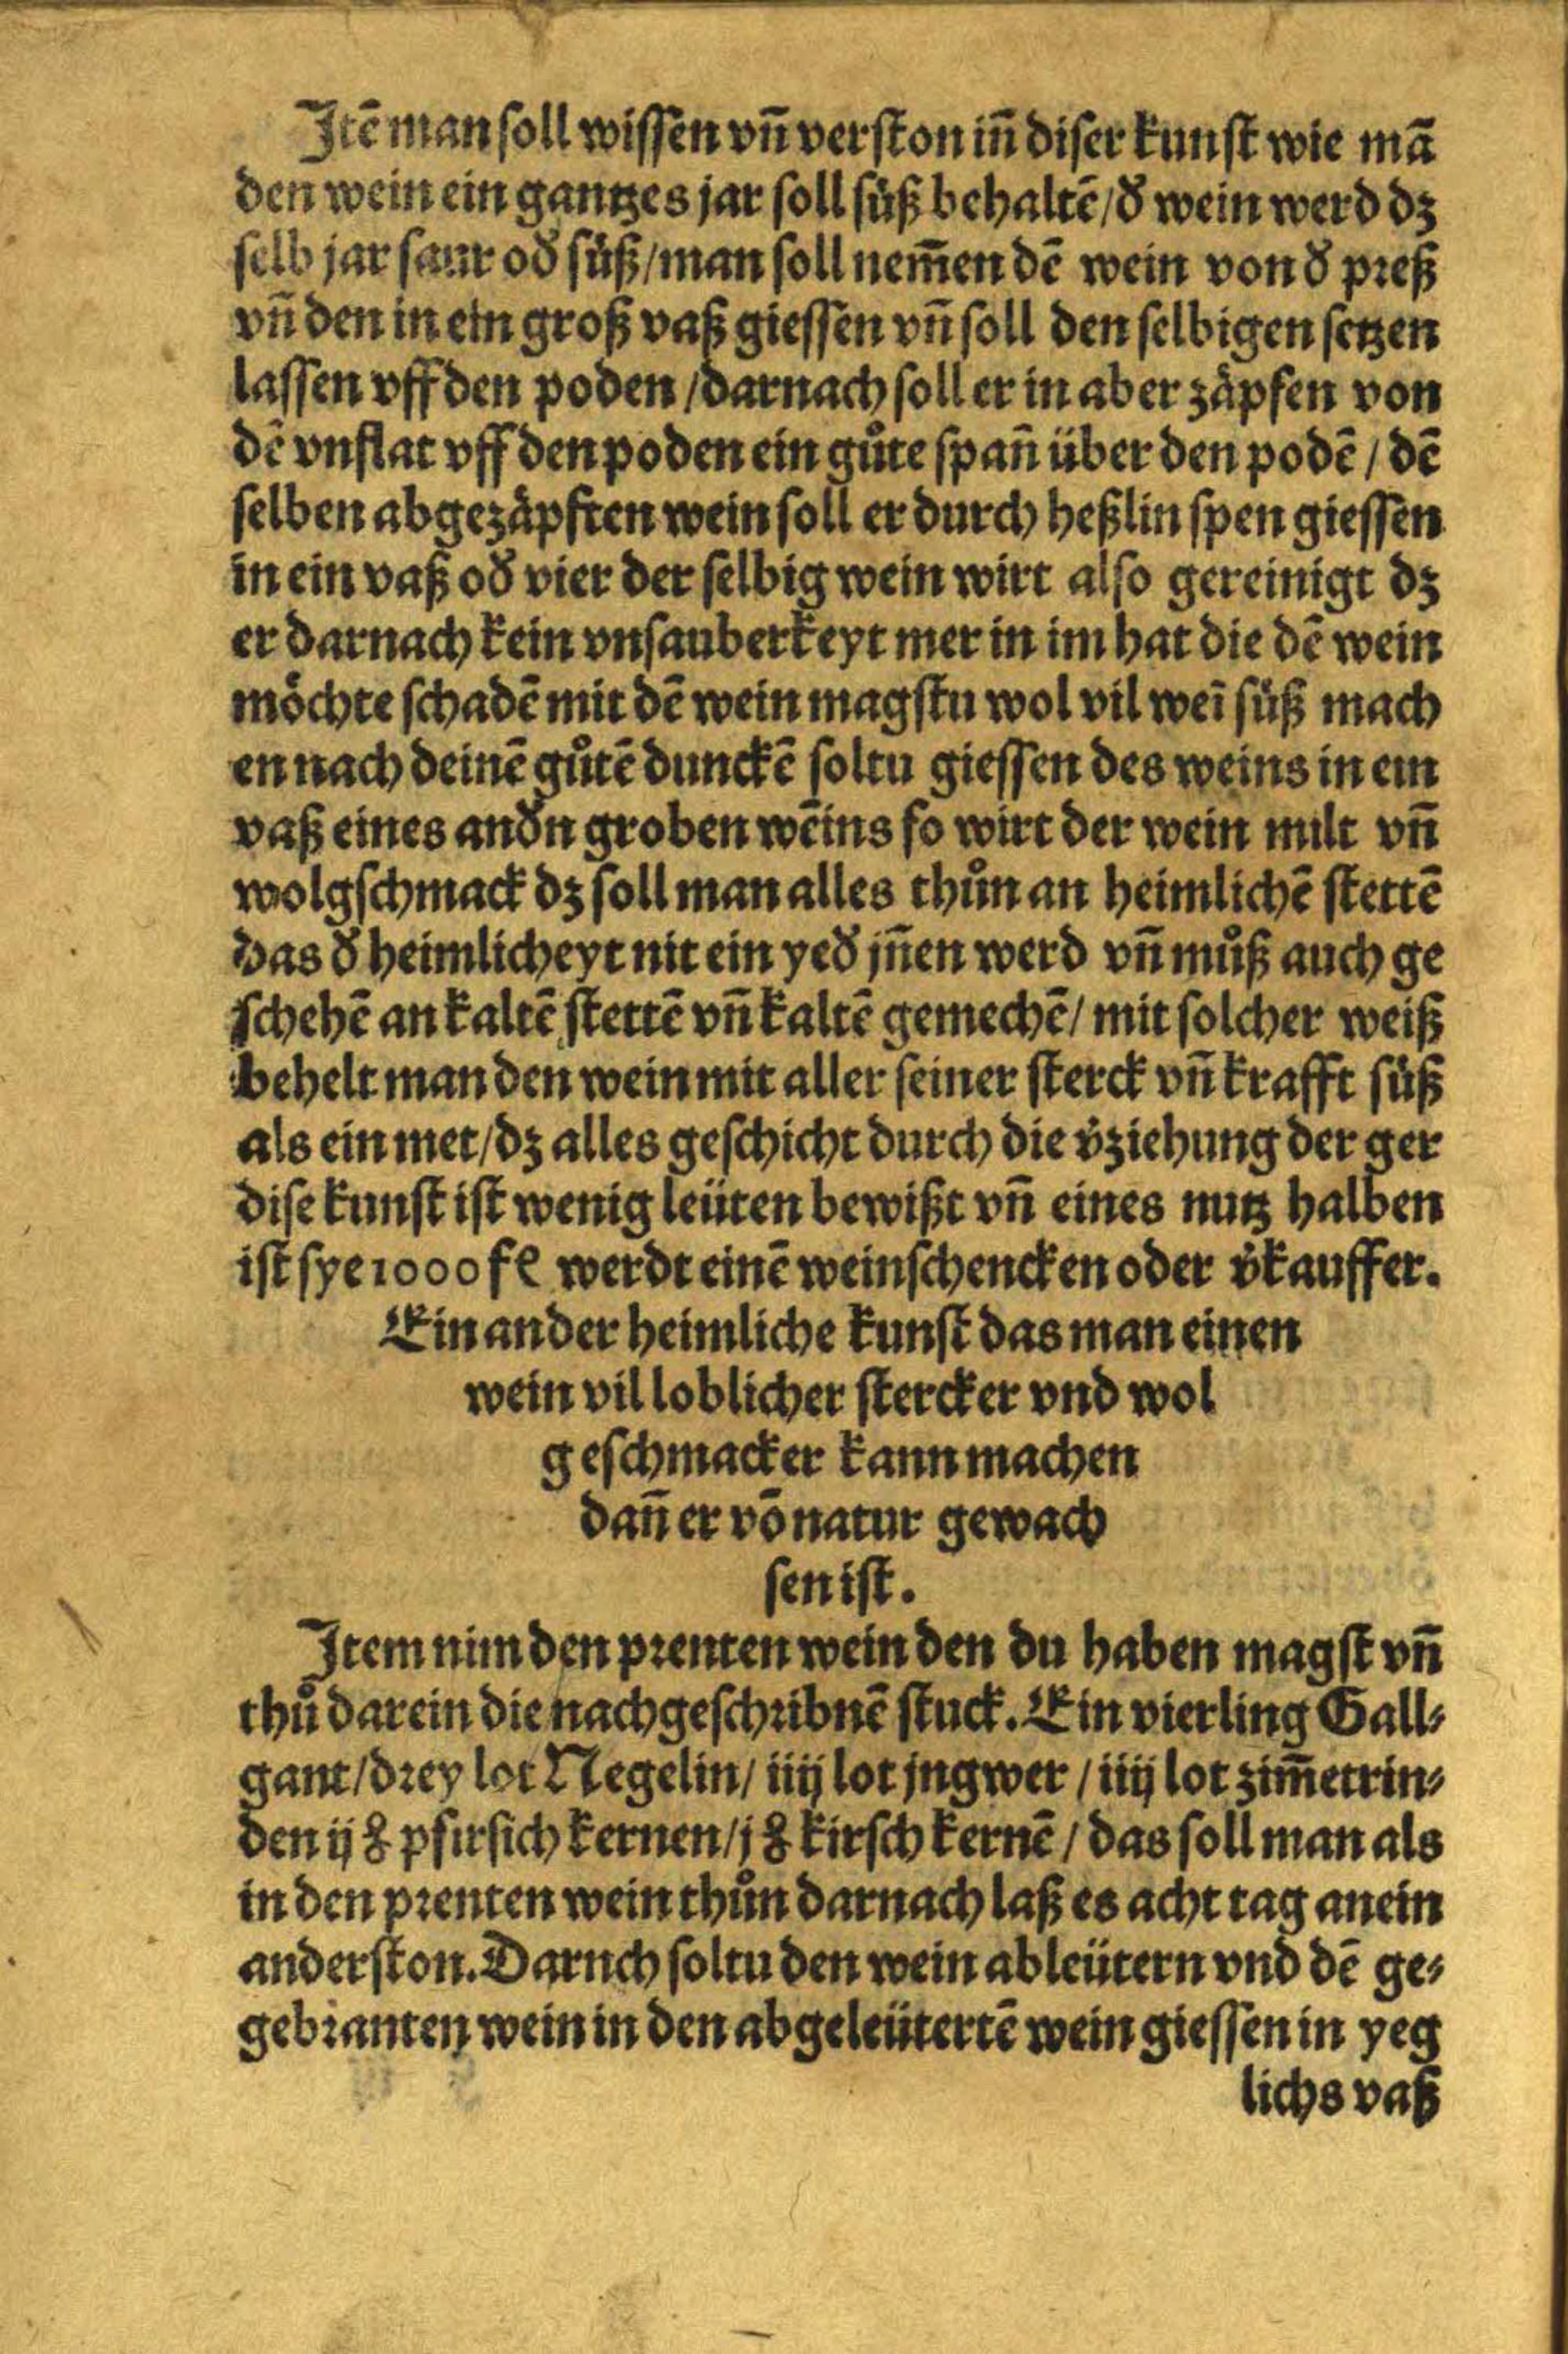 Jtē man soll wissen vñ verston iñ diser kunst wie mā
den wein ein gantzes jar soll süß behaltē/ð wein werd dz
selb jar saur oð süß/man soll nem̄en dē wein von ð preß
vñ den in ein groß vaß giessen vñ soll den selbigen setzen
lassen vff den poden/darnach soll er in aber zäpfen von
dē vnflat vff den poden ein gůte spañ über den podē/dē
selben abgezäpften wein soll er durch heßlin spen giessen
in ein vaß oð vier der selbig wein wirt also gereinigt dz
er darnach kein vnsauberkeyt mer in im hat die dē wein
möchte schadē mit dē wein magstu wol vil weī süß mach
en nach deinē gůtē dunckē soltu giessen des weins in ein
vaß eines anðn groben wēins so wirt der wein milt vñ
wolgschmack dz soll man alles thůn an heimlichē stettē
das ð heimlicheyt nit ein yeð jñen werd vñ můß auch ge
schehē an kaltē stettē vñ kaltē gemechē/mit solcher weiß
behelt man den wein mit aller seiner sterck vñ krafft süß
als ein met/dz alles geschicht durch die v̓ziehung der ger
dise kunst ist wenig leüten bewißt vñ eines nutz halben
ist sye 1000 fl werdt einē weinschencken oder v̓kauffer.
Ein ander heimliche kunst das man einen
wein vil loblicher stercker vnd wol
geschmacker kann machen
dañ er vō natur gewach
sen ist.
Jtem nim den prenten wein den du haben magst vñ
thů darein die nachgeschribnē stuck. Ein vierling Gall⸗
gant/drey lot Negelin/iiij lot jngwer/iiij lot zim̄etrin⸗
den ij ℥ pfirsich kernen/j ℥ kirsch kernē/das soll man als
in den prenten wein thůn darnach laß es acht tag anein
anderston. Darnch soltu den wein ableütern vnd dē ge⸗
gebranten wein in den abgeleütertē wein giessen in yeg
lichs vaß